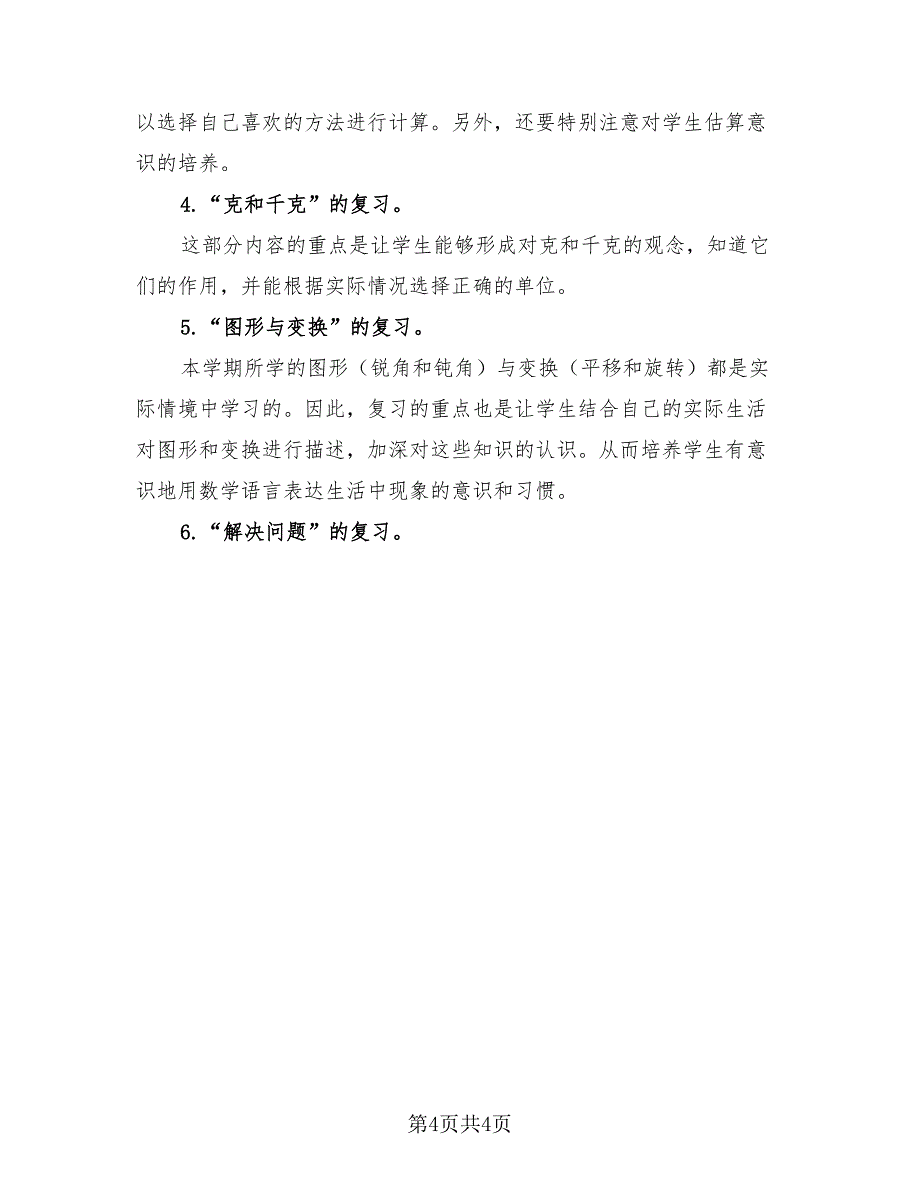 以选择自己喜欢的方法进行计算。另外，还要特别注意对学生估算意
识的培养。
4.“克和千克”的复习。
这部分内容的重点是让学生能够形成对克和千克的观念，知道它
们的作用，并能根据实际情况选择正确的单位。
5.“图形与变换”的复习。
本学期所学的图形（锐角和钝角）与变换（平移和旋转）都是实
际情境中学习的。因此，复习的重点也是让学生结合自己的实际生活
对图形和变换进行描述，加深对这些知识的认识。从而培养学生有意
识地用数学语言表达生活中现象的意识和习惯。
6.“解决问题”的复习。
第4页共4页